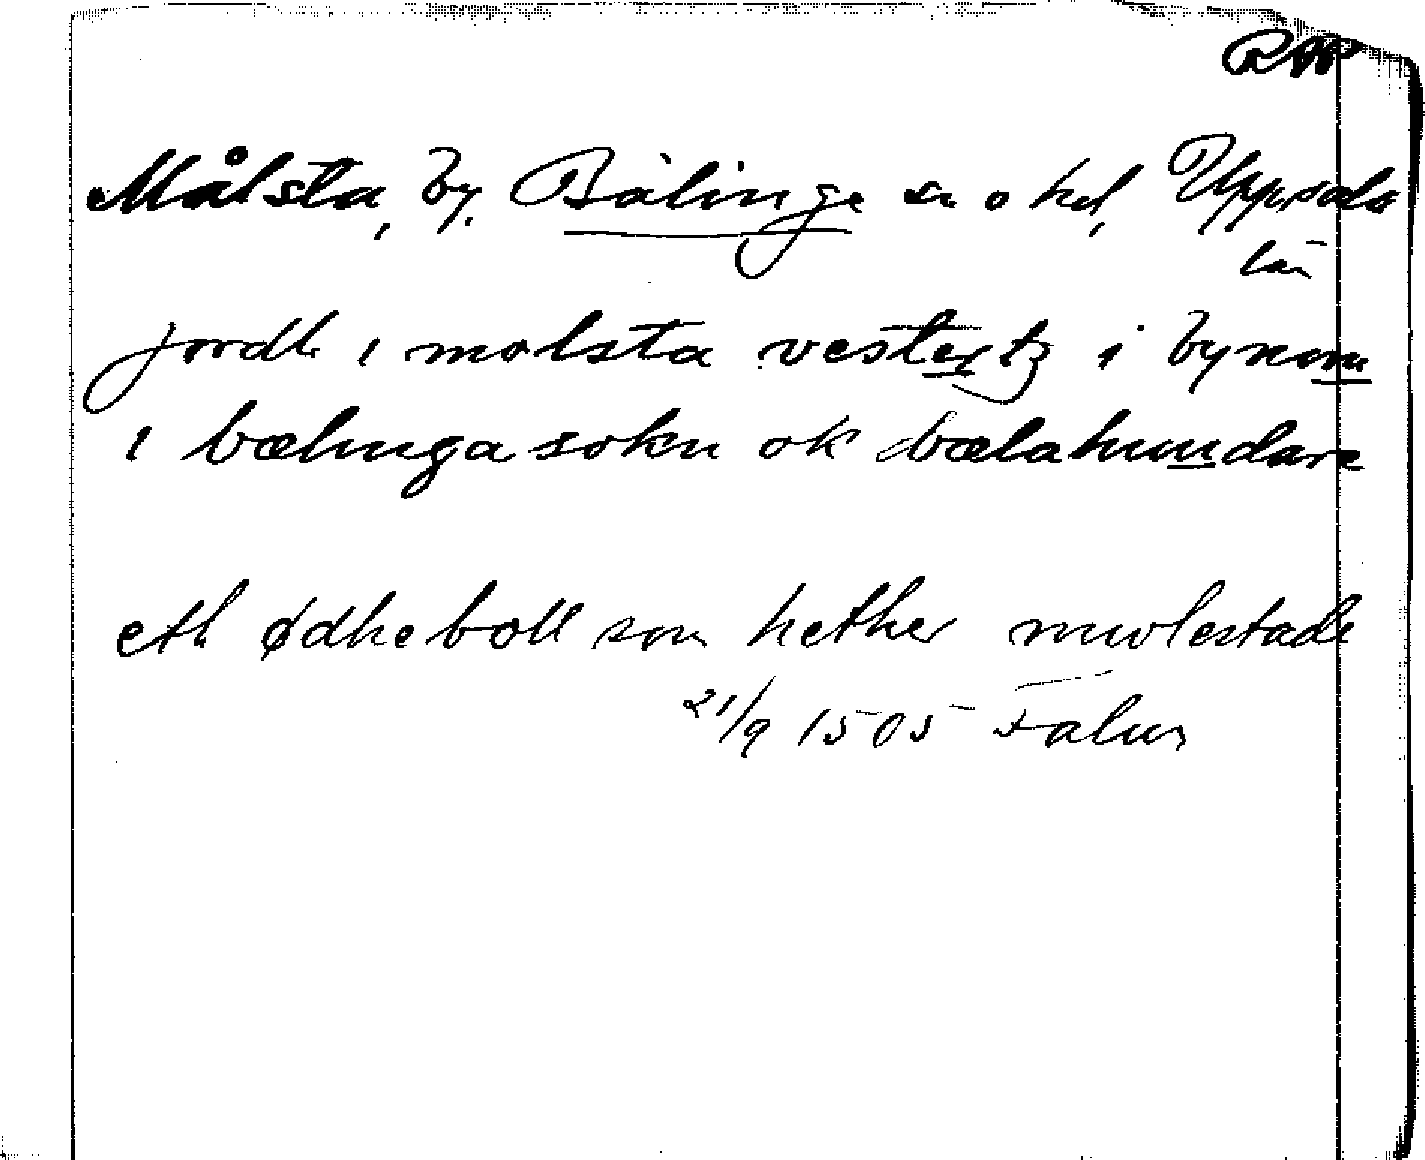 RAP
Målsta, by, Bälinge sn o hd, Uppsala
län
jordh i molsta vestertz i bynom
i bælinga sokn ok bælahundare
eth ødheboll som hether mwlestade
21/9 1505 Falun